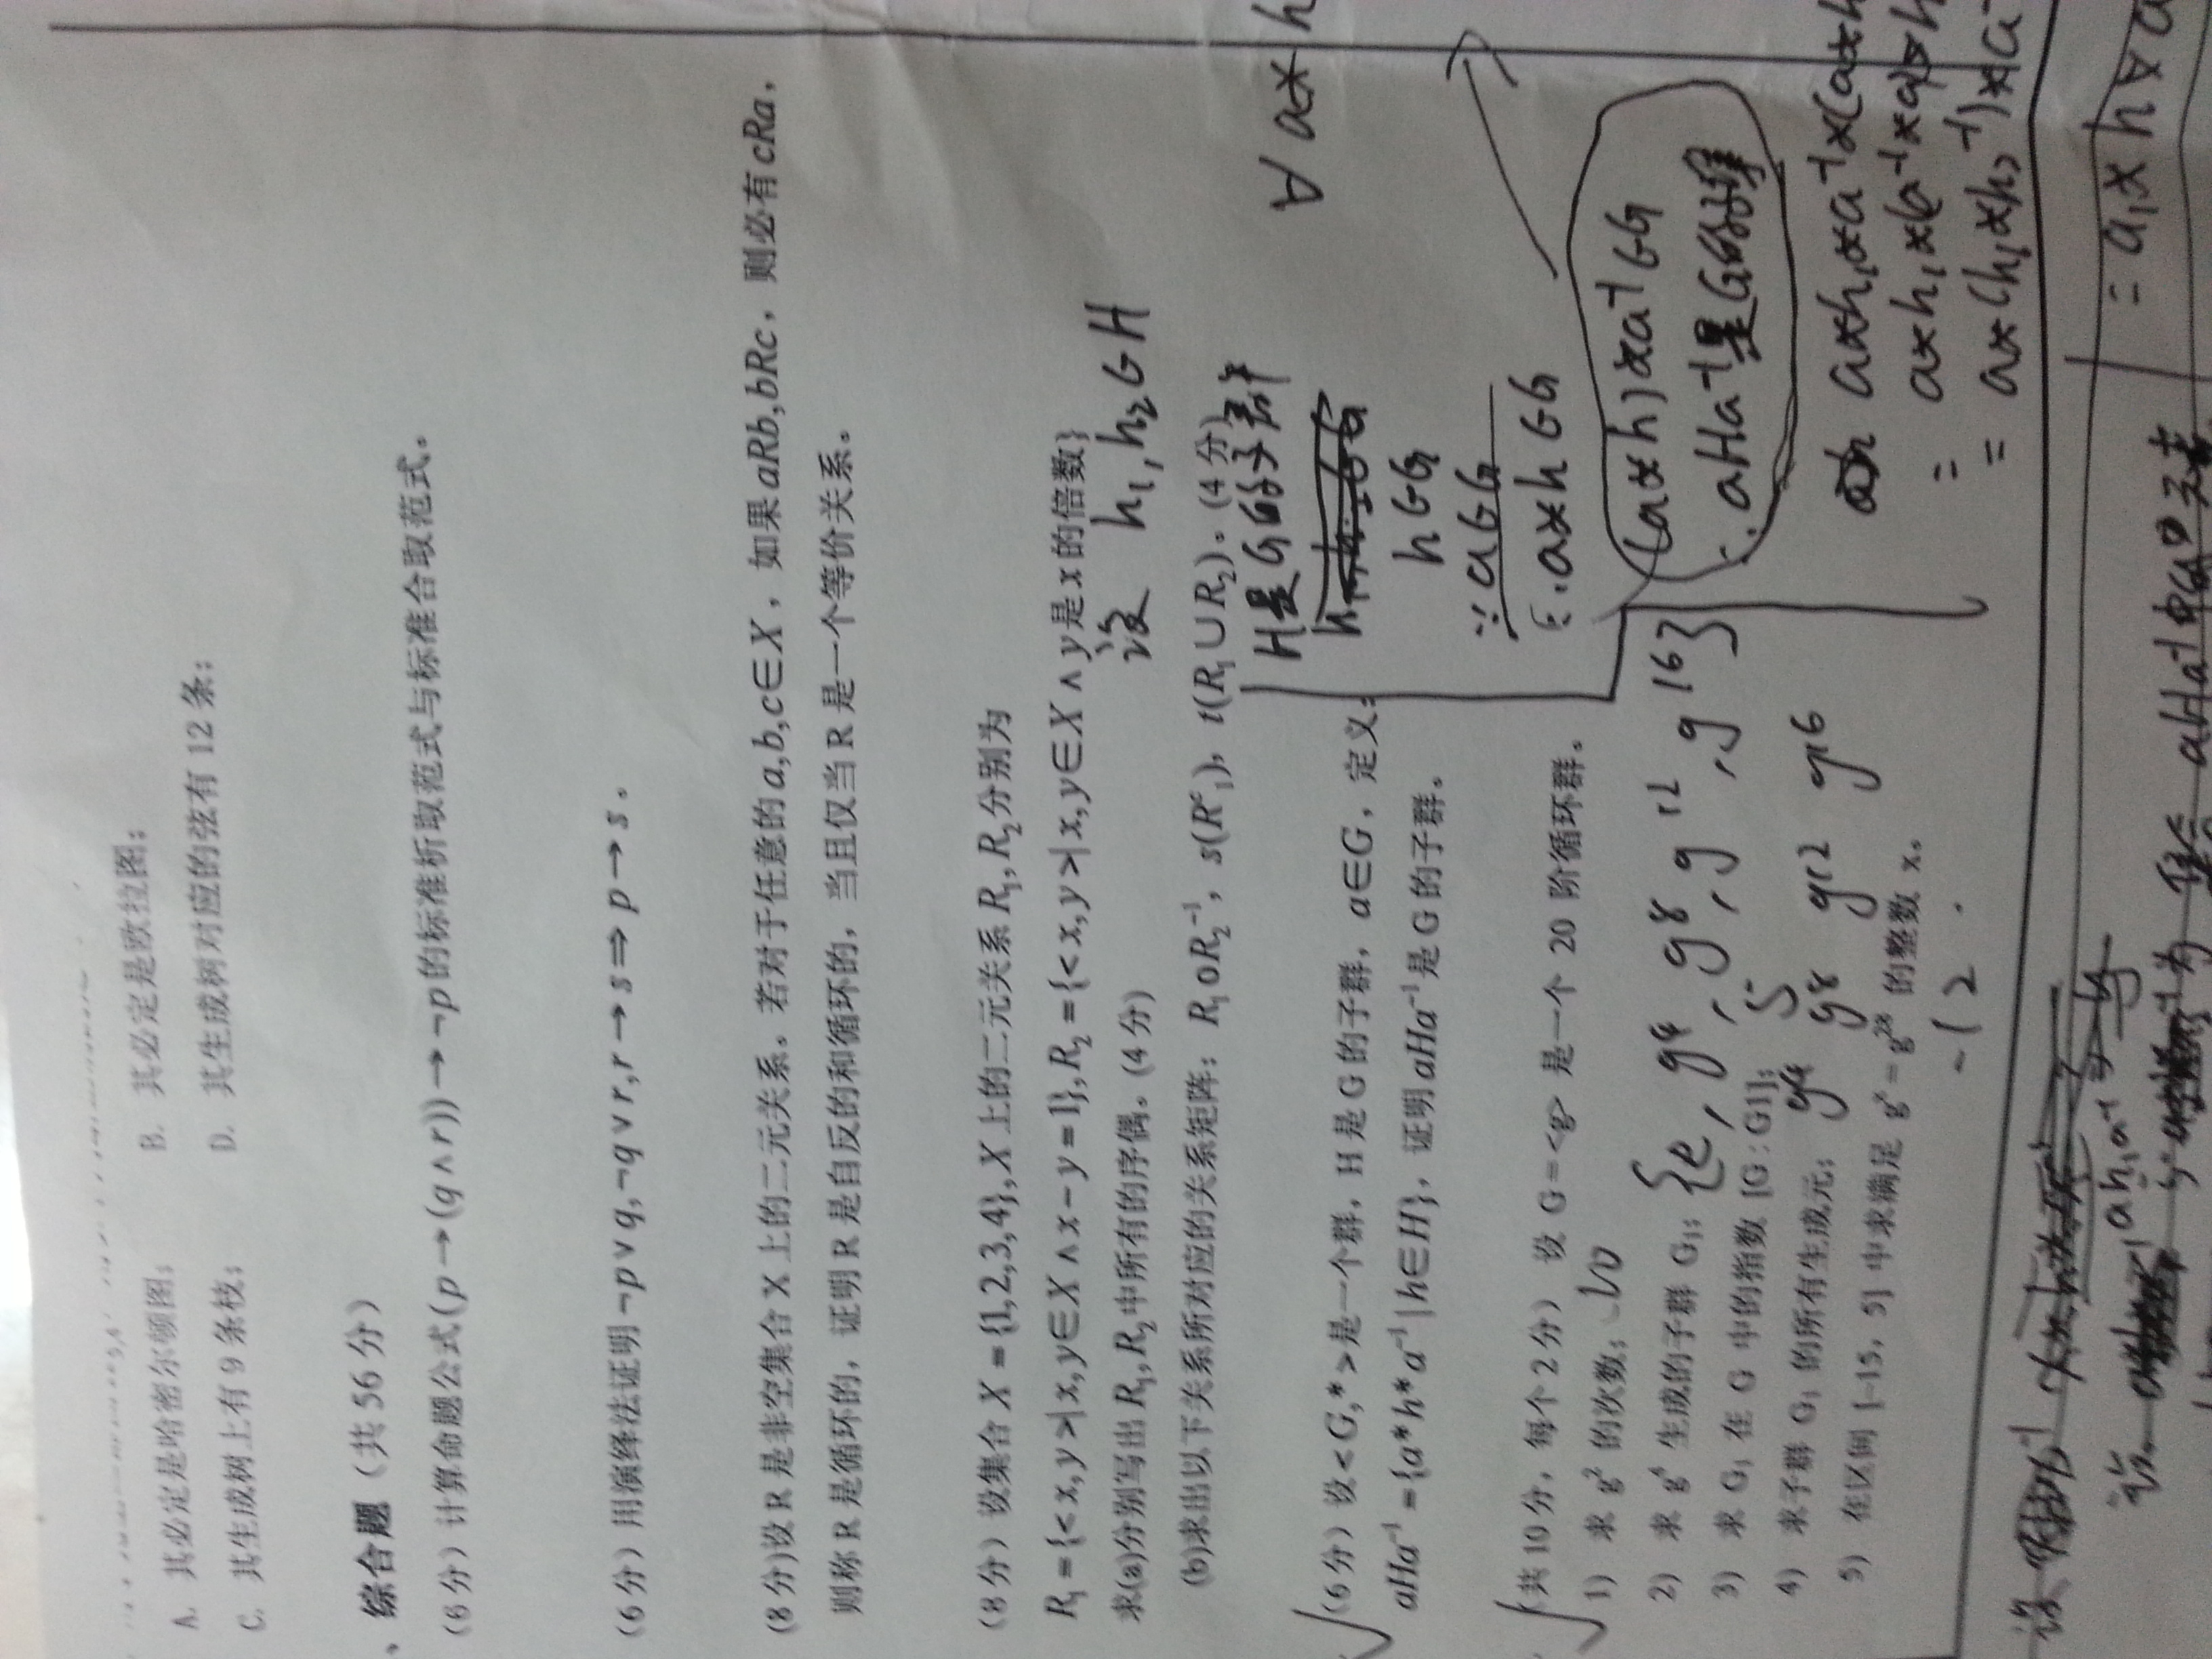 A. 其必定是哈密尔顿图; B. 其必定是欧拉图;
C. 其生成树上有 9 条枝; D. 其生成树对应的弦有 12 条;
、综合题（共 56 分）
(6 分）计算命题公式(p→(q∧r))→¬p的标准析取范式与标准合取范式。
(6 分）用演绎法证明¬p∨q,¬q∨r,r→s⇒p→s。
(8 分)设 R 是非空集合 X 上的二元关系。若对于任意的a,b,c∈X，如果aRb,bRc，则必有cRa，
则称 R 是循环的，证明 R 是自反的和循环的，当且仅当 R 是一个等价关系。
(8 分）设集合 X={1,2,3,4},X 上的二元关系 R₁,R₂分别为
R₁={<x,y>|x,y∈X∧x−y=1},R₂={<x,y>|x,y∈X∧y是x的倍数}
求(a)分别写出 R₁,R₂中所有的序偶。(4 分)
设 h₁,h₂∈H
(b)求出以下关系所对应的关系矩阵：R₁oR₂⁻¹，s(Rᶜ₁)，t(R₁∪R₂)。(4 分)
H是G的子群
∀ a*h
(6 分）设<G,*>是一个群，H 是 G 的子群，a∈G，定义：
h∈G
aHa⁻¹={a*h*a⁻¹|h∈H}，证明aHa⁻¹是 G 的子群。
∵a∈G
∴a*h∈G
(共 10 分，每个 2 分） 设 G=<g> 是一个 20 阶循环群。
1) 求 g² 的次数; 10
(a*h)*a⁻¹∈G
2) 求 g⁴ 生成的子群 G₁; {e, g⁴, g⁸, g¹², g¹⁶}
∴aHa⁻¹是G的子集
3) 求 G₁ 在 G 中的指数 [G:G1]; 5
4) 求子群 G₁ 的所有生成元; g⁴ g⁸ g¹² g¹⁶
5) 在区间 [-15，5] 中求满足 gˣ=g²⁸ 的整数 x。
-12
a*h₁*a⁻¹*(a*h
= a*h₁*(a⁻¹*a)*h
= a*(h₁*h₂⁻¹)*a⁻
设
设 ah₁a⁻¹
= a₁*h*a
为 任意 aHa⁻¹中的 元素